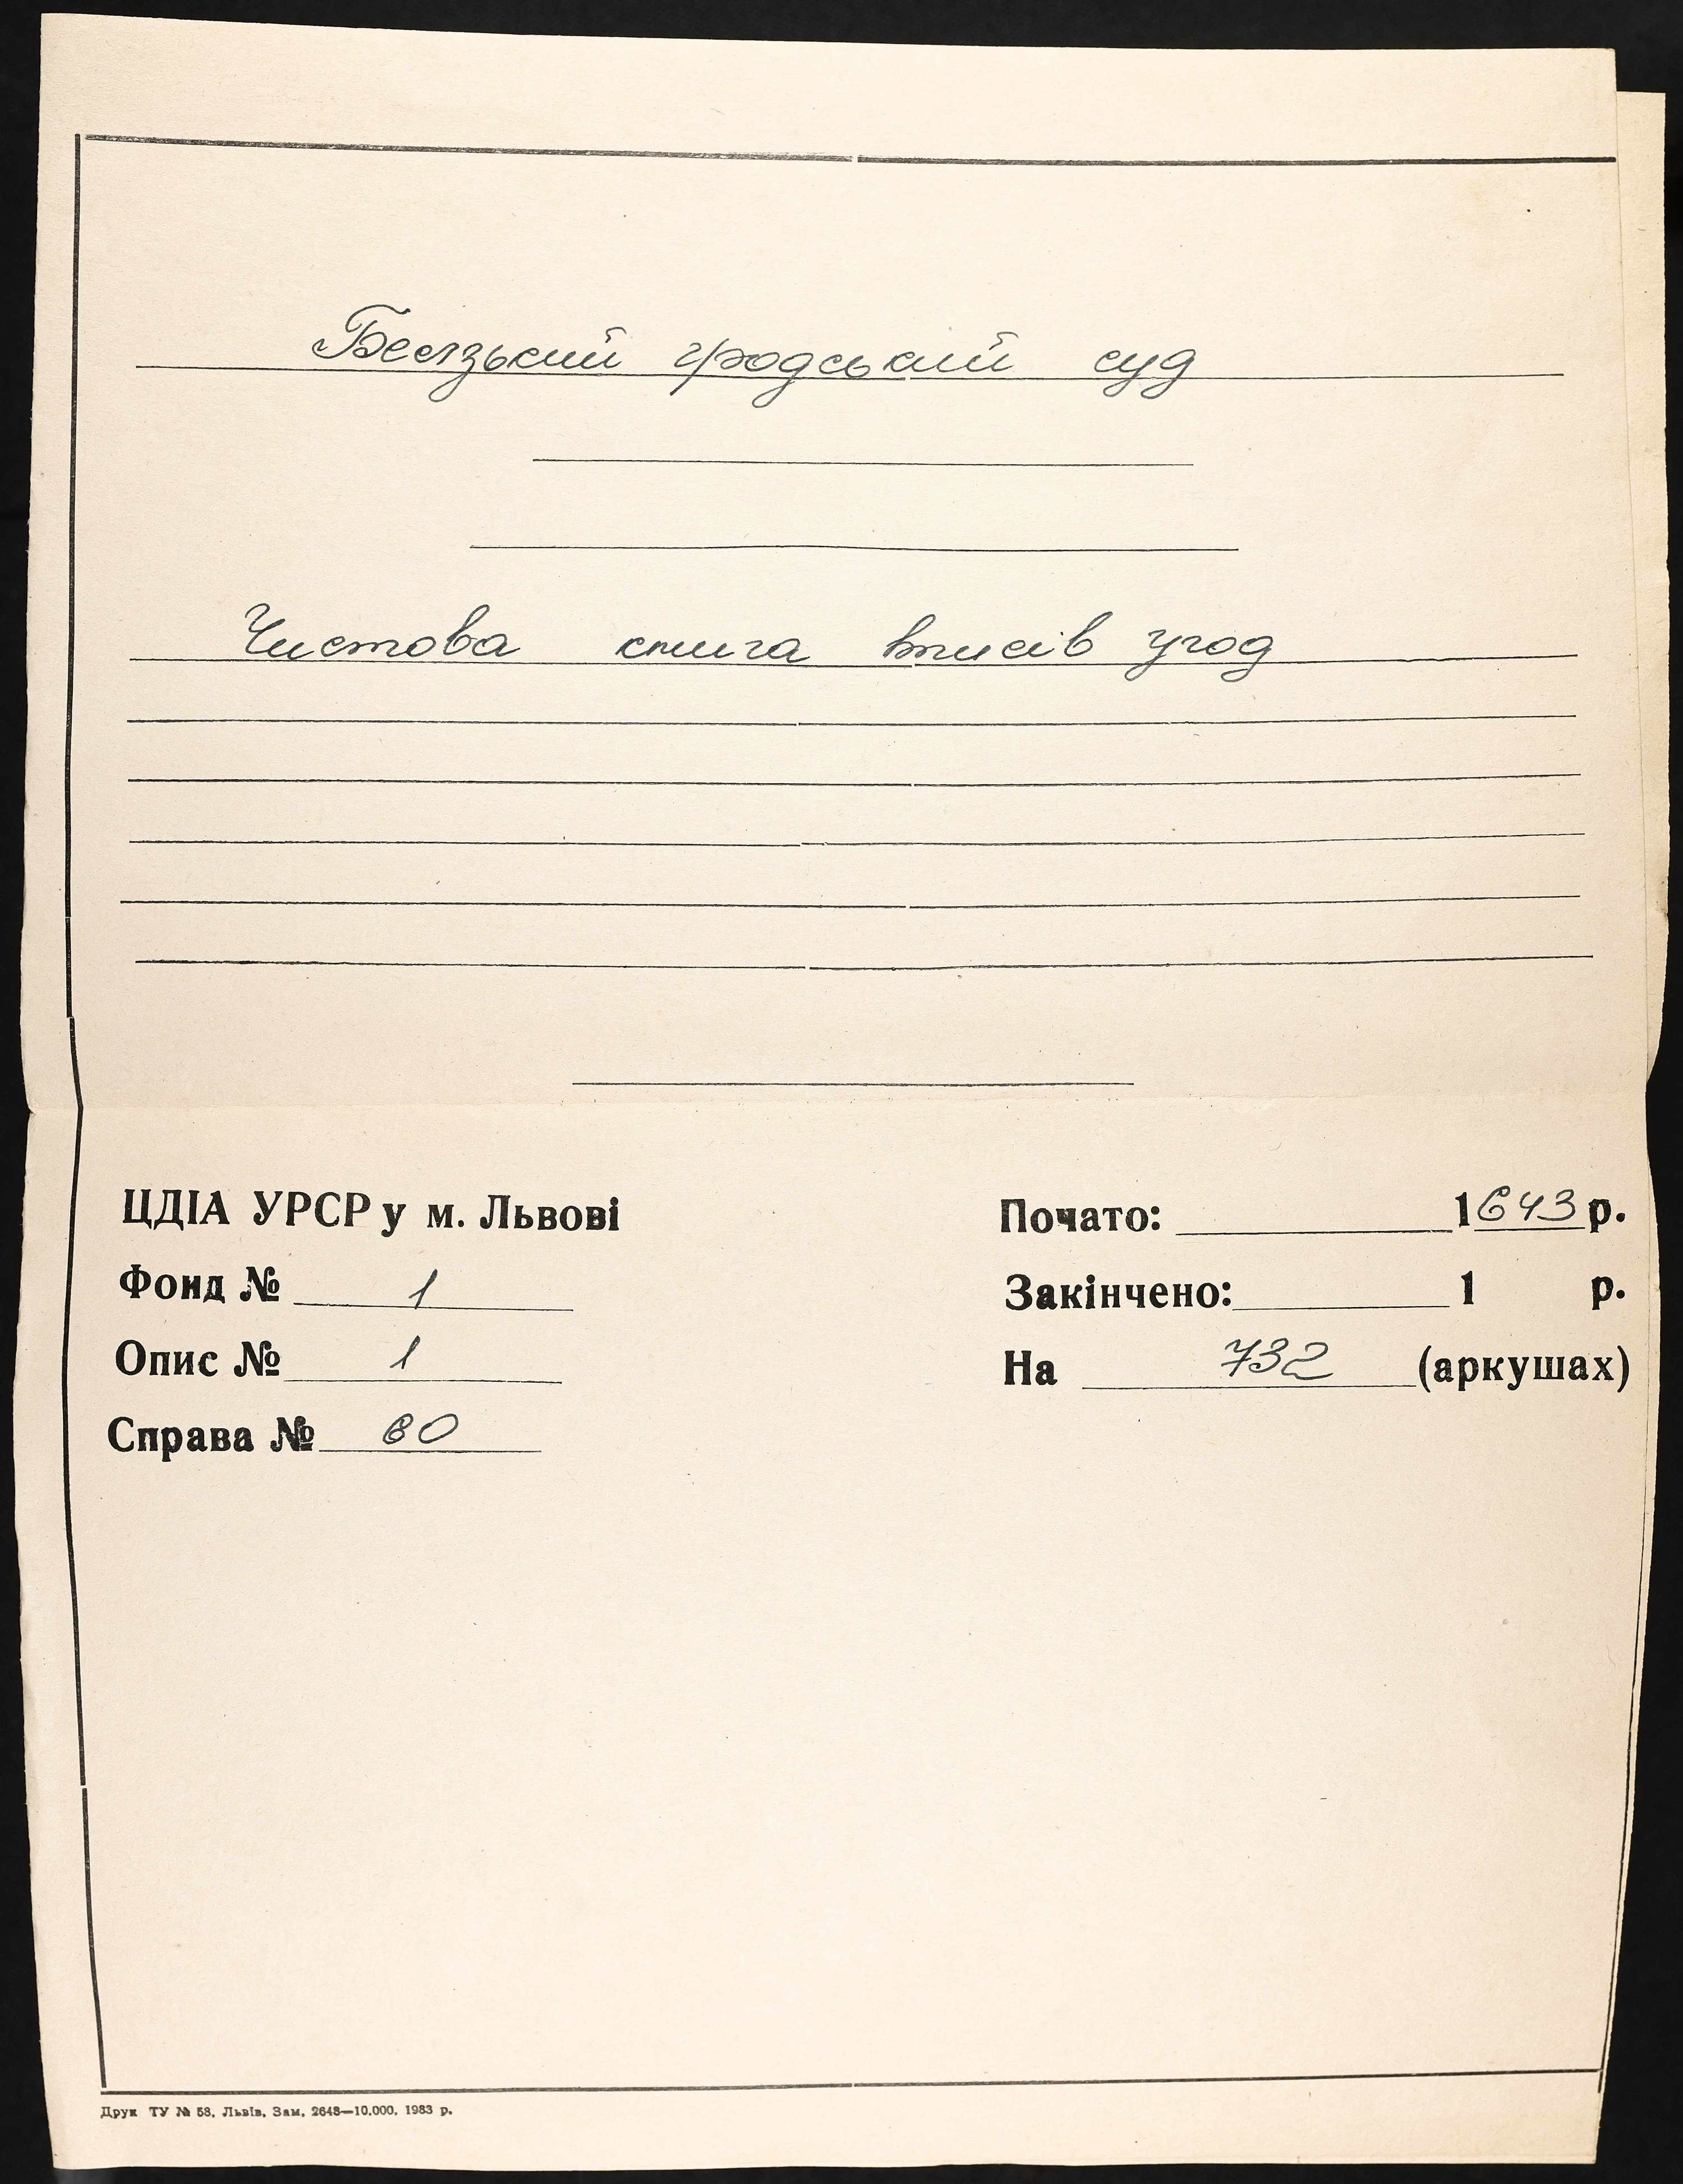 Белзький гродський суд
Чистова книга вписів угод
ЦДІА УРСР у м. Львові
Фонд № 1
Опис № 1
Справа № 60
Почато: 1643 р.
Закінчено: 1 р.
На 732 (аркушах)
Друк ТУ № 58, Львів, Зам. 2648—10.000. 1983 р.